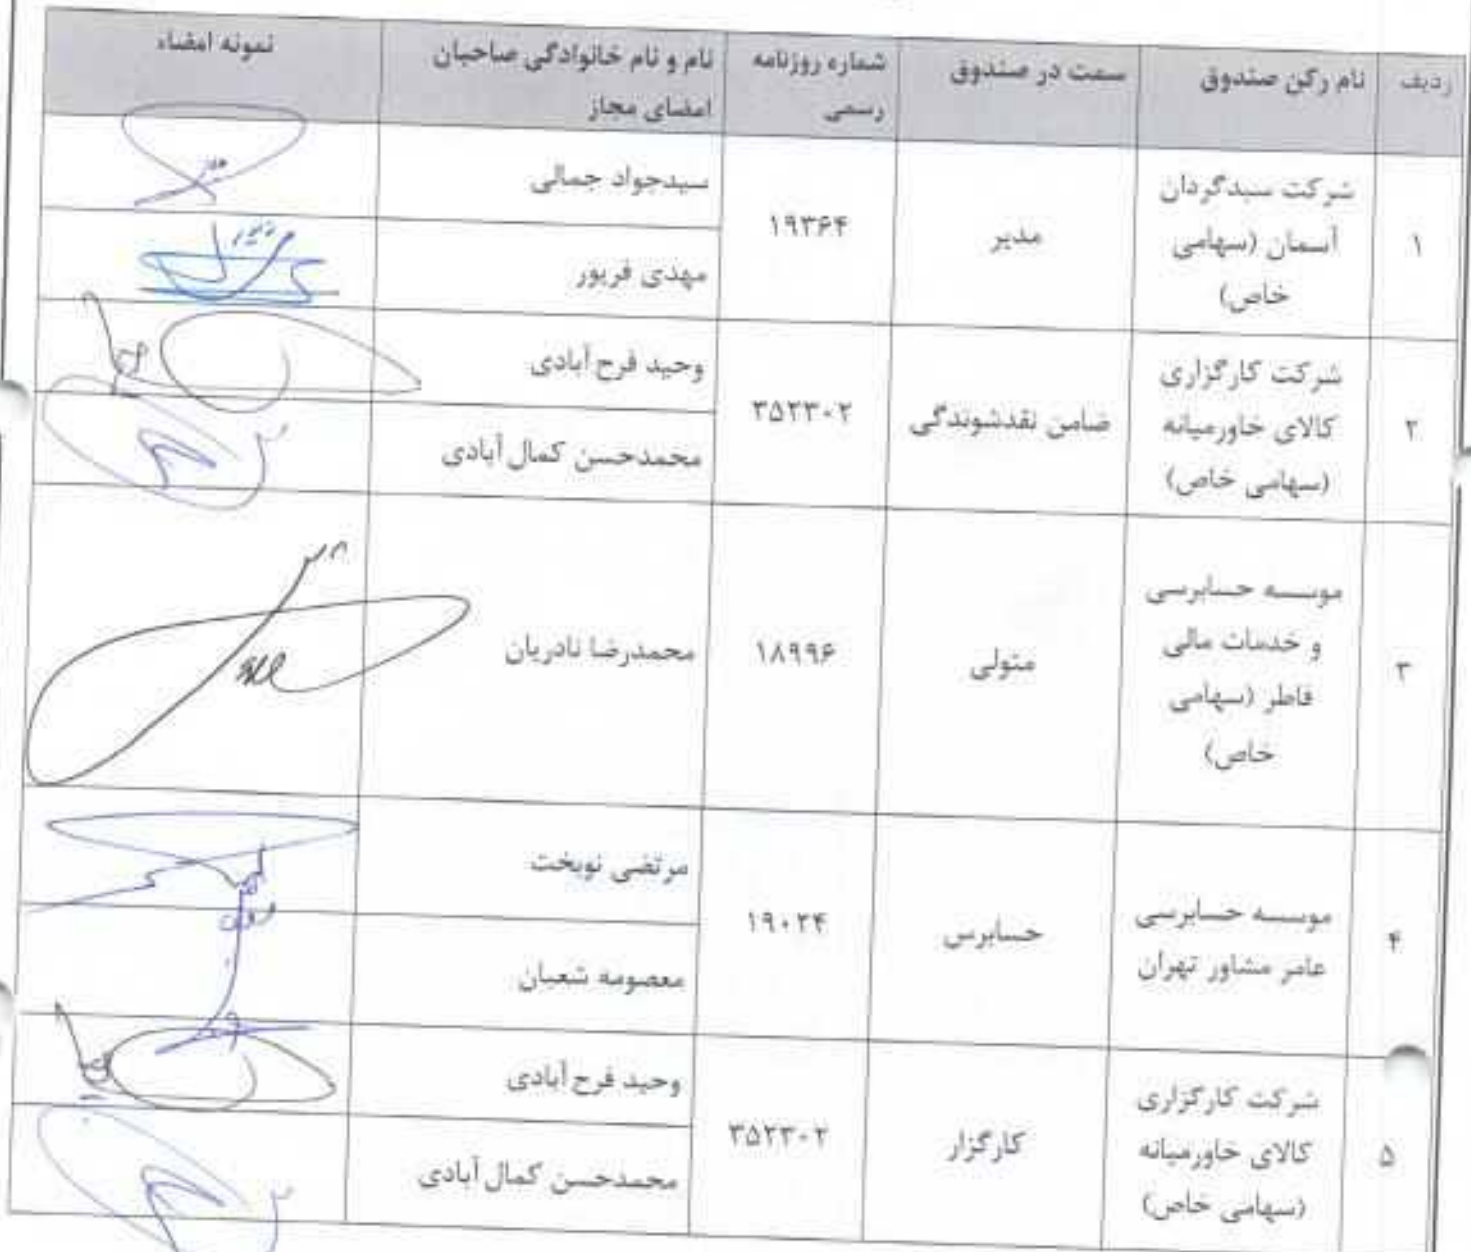 ردیف
نام رکن صندوق
سمت در صندوق
شماره روزنامه
رسمی
نام و نام خانوادگی صاحبان
امضای مجاز
نمونه امضاء
۱
شرکت سبدگردان
آسمان (سهامی
خاص)
مدیر
۱۹۳۶۴
سیدجواد جمالی
مهدی فریور
۲
شرکت کارگزاری
کالای خاورمیانه
(سهامی خاص)
ضامن نقدشوندگی
۳۵۲۳۰۲
وحید فرح آبادی
محمدحسن کمال آبادی
۳
موسسه حسابرسی
و خدمات مالی
فاطر (سهامی
خاص)
متولی
۱۸۹۹۶
محمدرضا نادریان
۴
موسسه حسابرسی
عامر مشاور تهران
حسابرس
۱۹۰۲۴
مرتضی نوبخت
معصومه شعبان
۵
شرکت کارگزاری
کالای خاورمیانه
(سهامی خاص)
کارگزار
۳۵۲۳۰۲
وحید فرح آبادی
محمدحسن کمال آبادی